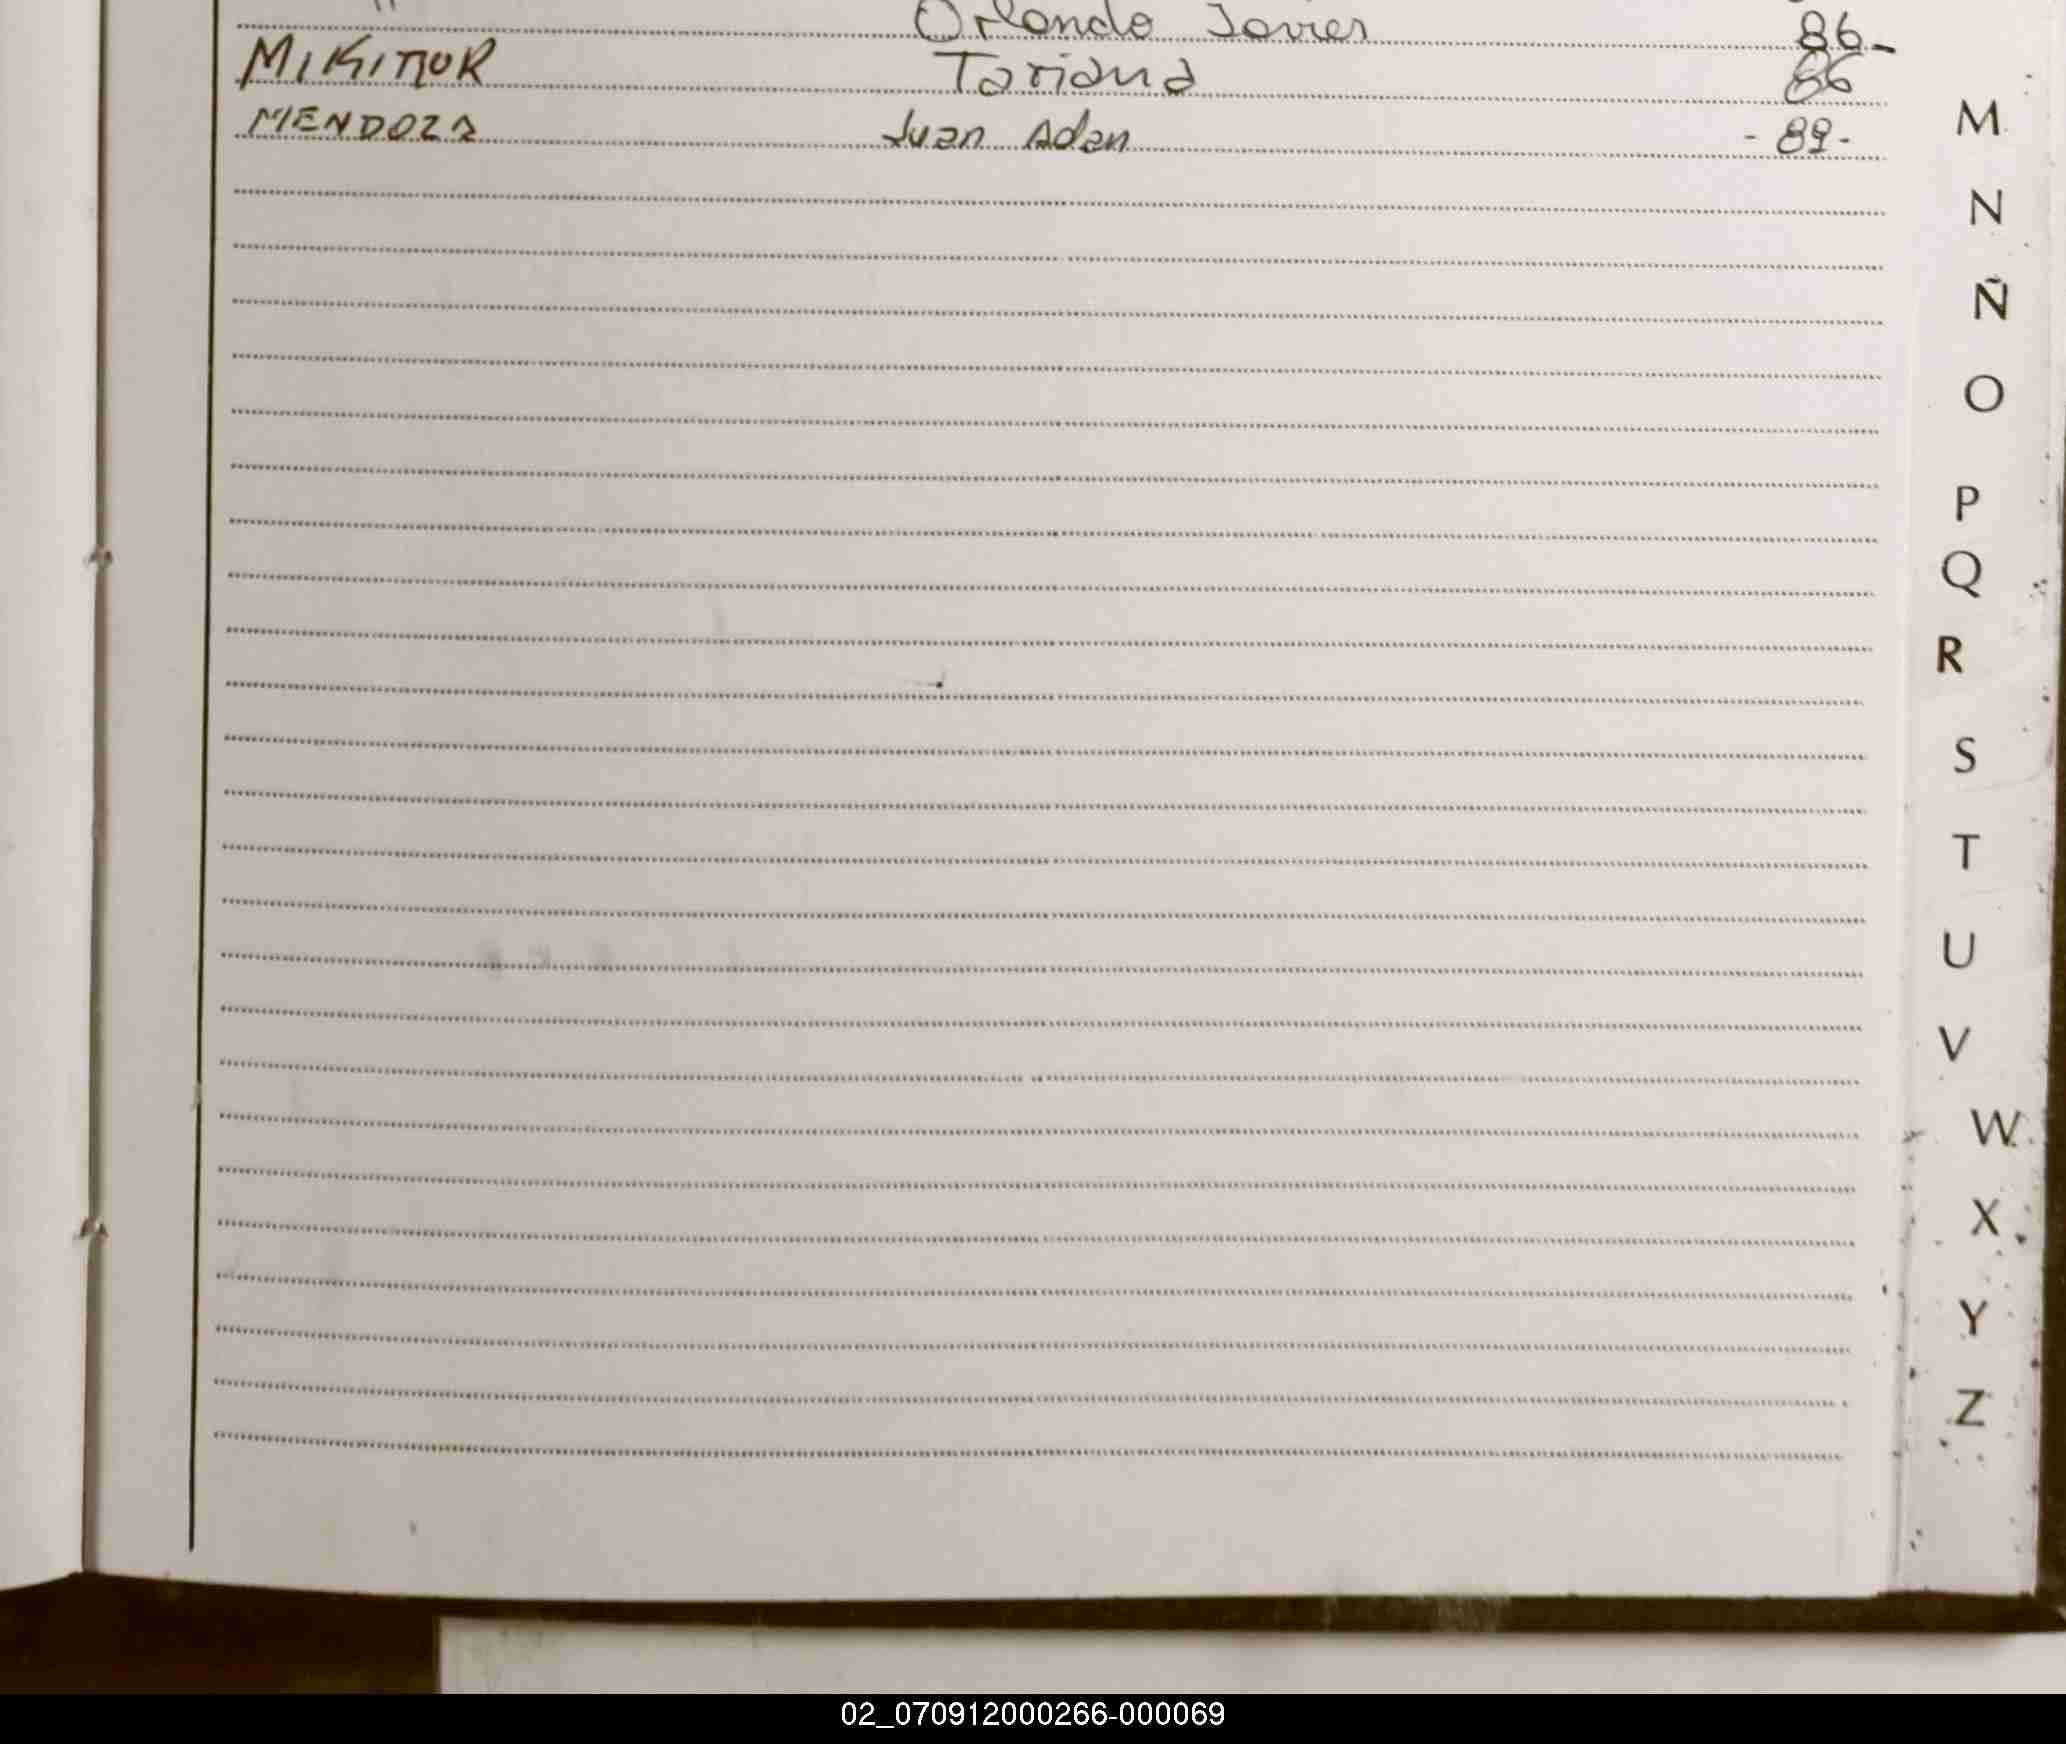 " Orlando Javier 86-
MIKITIUK Tatiana 86
MENDOZA Juan Adan - 89 -
M
N
Ñ
O
P
Q
R
S
T
U
V
W
X
Y
Z
02_070912000266-000069